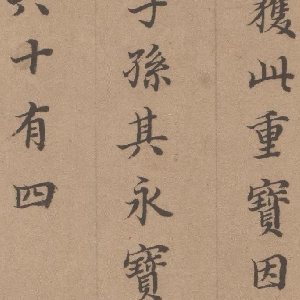 獲此重寶因
子孫其永寶
六十有四